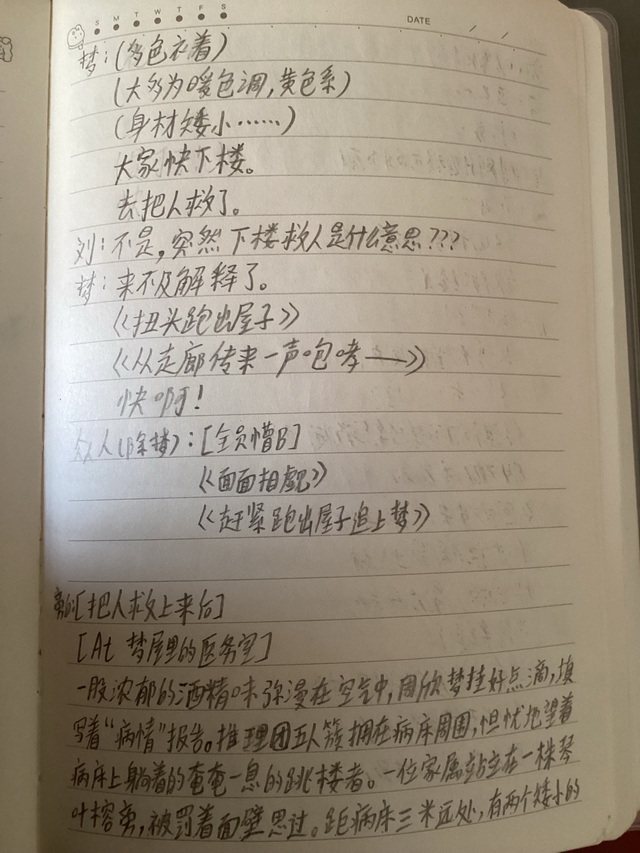 S M T W T F S
DATE / /
梦:(多色衣着)
(大多为暖色调,黄色系)
(身材矮小……)
大家快下楼。
去把人救了。
刘:不是,突然下楼救人是什么意思???
梦:来不及解释了。
《扭头跑出屋子》
《从走廊传来一声咆哮——》
快啊!
众人(除梦):[全员懵B]
《面面相觑》
《赶紧跑出屋子追上梦》
[把人救上来后]
[At 梦屋里的医务室]
一股浓郁的酒精味弥漫在空气中,周欣梦挂好点滴,填
写着“病情”报告。推理团五人簇拥在病床周围,担忧地望着
病床上躺着的奄奄一息的跳楼者。一位家属站立在一株琴
叶榕旁,被罚着面壁思过。距病床三米远处,有两个矮小的